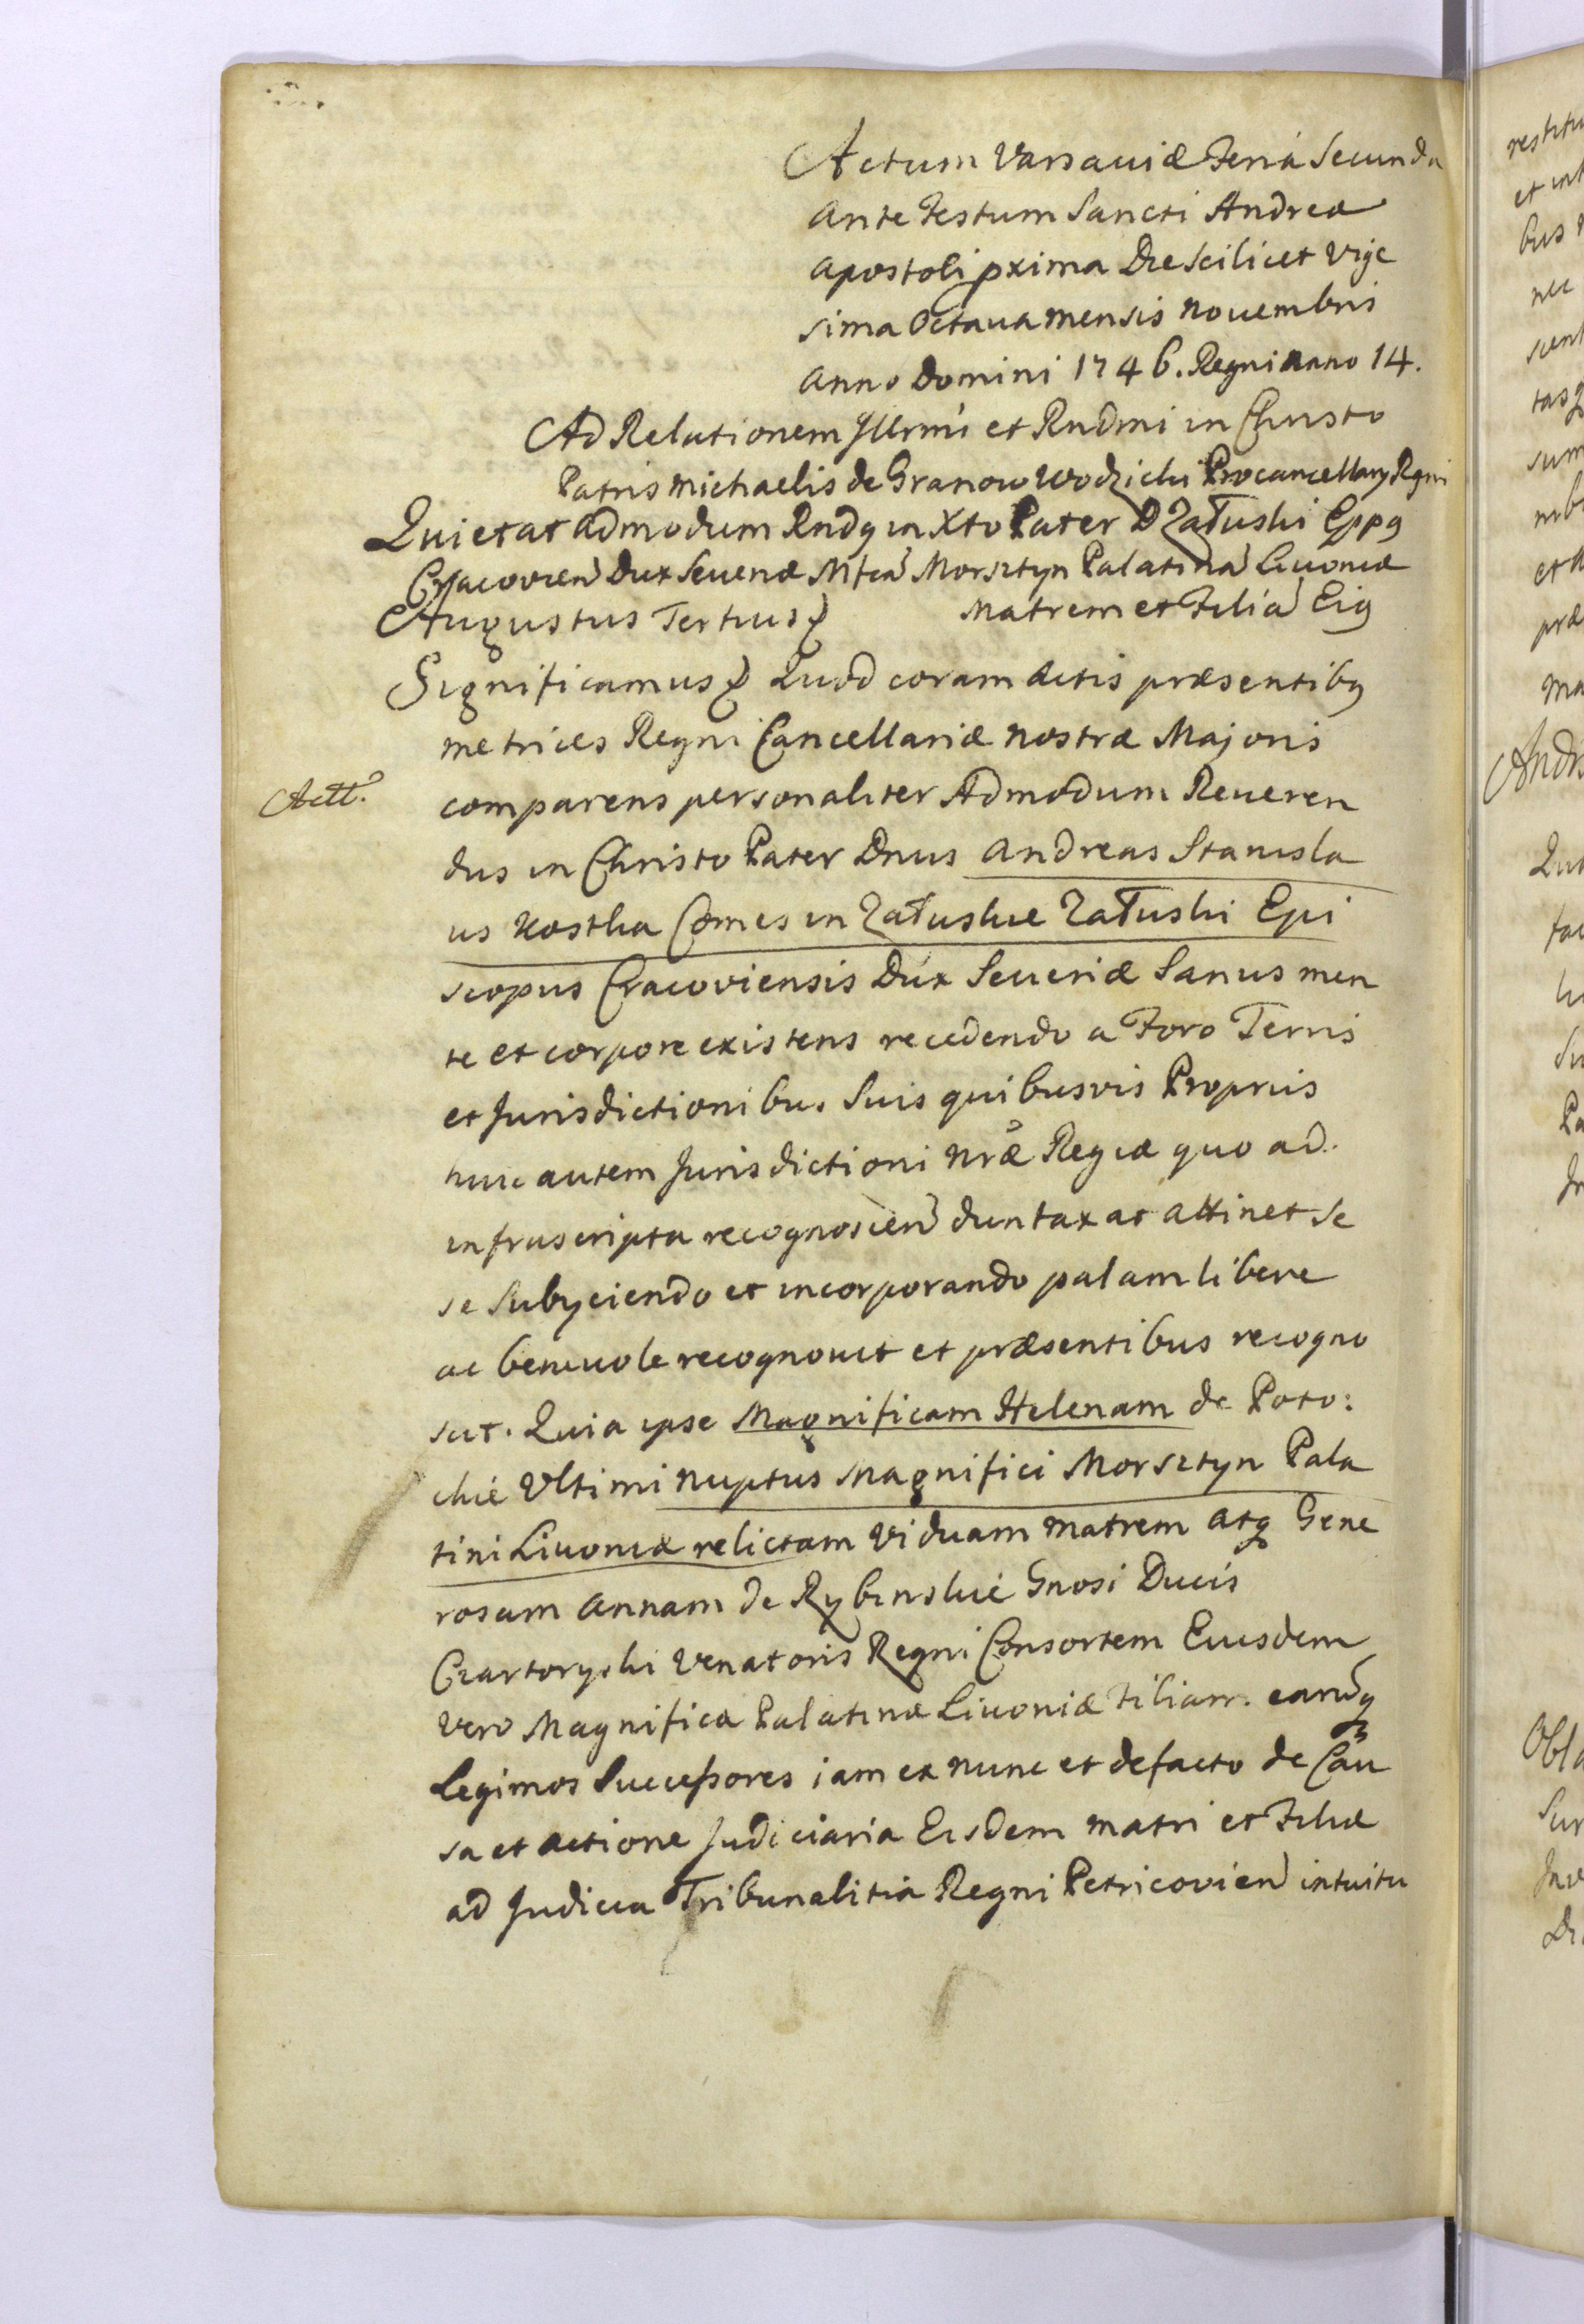 Actum Varsaviæ Feriá Secunda
ante Festum Sancti Andreæ
Apostoli pxima Die Scilicet Vige
sima Octava mensis Novembris
Anno Domini 1746. Regni anno 14.
Ad Relationem Jllrmi et Rndmi in Christo
Patris Michaelis de Granow Wodzicki Procancellarÿ Regni
Quietat Admodum Rndq in Xto Pater D Załuski Eppq
Cracovien Dux Severiæ Mtca Morsztyn Palatina Livoniæ
Augustus Tertius
Matrem et Filia Eiq
Significamus Quod coram Actis præsentibq
metrices Regni Cancellariæ nostræ Majoris
Actt.
comparens personaliter Admodum Reveren
dus in Christo Pater Dnus Andreas Stanisla
us Kostka Comes in Załuskie Załuski Epi
scopus Cracoviensis Dux Severiæ Sanus men
te et corpore existens recedendo a Foro Terris
et Jurisdictionibus Suis quibusvis Proprijs
huic autem Jurisdictioni nræ Regiæ quo ad
infrascripta recognoscen duntaxat attinet se
se Subyciendo et incorporando palam libere
ac benevole recognovit et præsentibus recogno
scit. Quia ipse Magnificam Helenam de Poto:
ckie Ultimi nuptus Magnifici Morsztyn Pala
tini Livoniæ relictam Viduam matrem atq Gene
rosam Annam de Rybinskie Gnosi Ducis
Czartoryski Venatoris Regni Consortem Eiusdem
vero Magnificæ Palatinæ Livoniæ Filiam. earudq
Legimos Successores iam ex nunc et defacto de Cau
sa et actione Judiciaria Eisdem matri et Filiæ
ad Judicia Tribunalitia Regni Petricovien intuitu